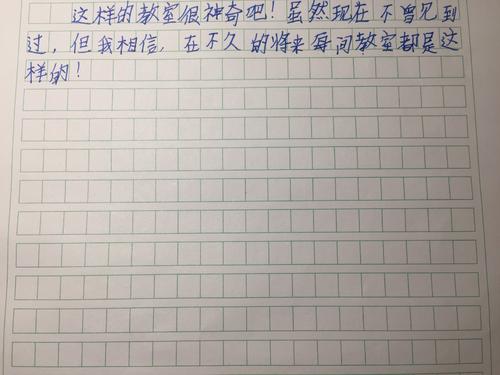 这样的教室很神奇吧！虽然现在不曾见到
过，但我相信，在不久的将来每间教室都是这
样的！